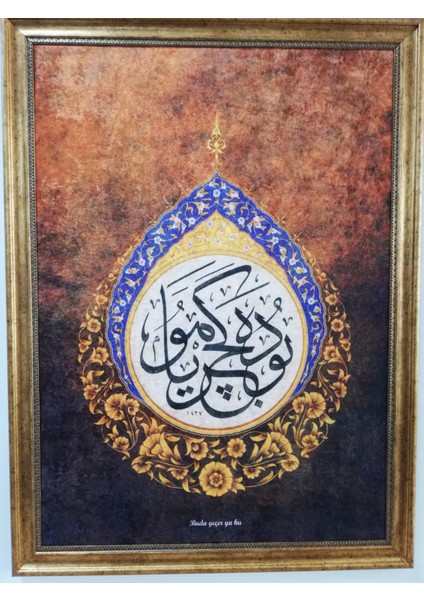 بو ده كچر يا هو
١٤٢٧
Buda geçer ya hu